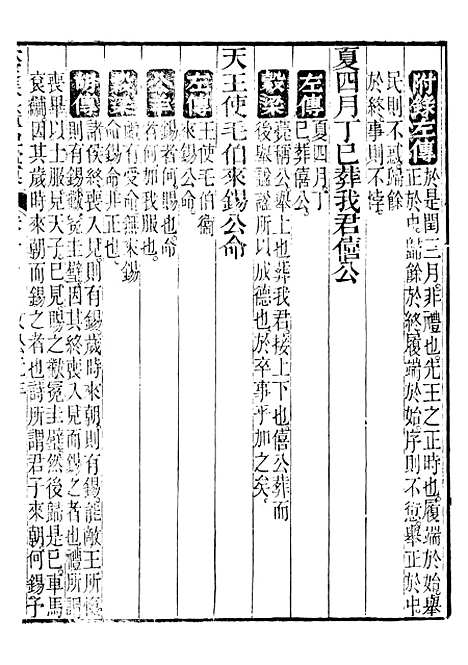 附錄左傳
於是閏三月非禮也先王之正時也履端於始舉
正於中歸餘於終履端於始序則不愆舉正於中
民則不惑歸餘
於終事則不悖
夏四月丁巳葬我君僖公
左傳
夏四月丁
巳葬僖公
穀梁
薨稱公舉上也葬我君接上下也僖公葬而
後舉諡所以成德也於卒事乎加之矣
天王使毛伯來錫公命
左傳
王使毛伯衞
來錫公命
公羊
錫者何賜也
命者何加我服也
穀梁
禮有受命無來錫
命錫命非正也
胡傳
諸侯終喪入見則有錫歲時來朝則有錫能敵王所愾
則有錫韍冕圭璧因其終喪入見而錫之者也禮所謂
喪畢以士服見天子已見賜之黻冕圭璧然後歸是已車馬
袞黼因其歲時來朝而錫之者也詩所謂君子來朝何錫予